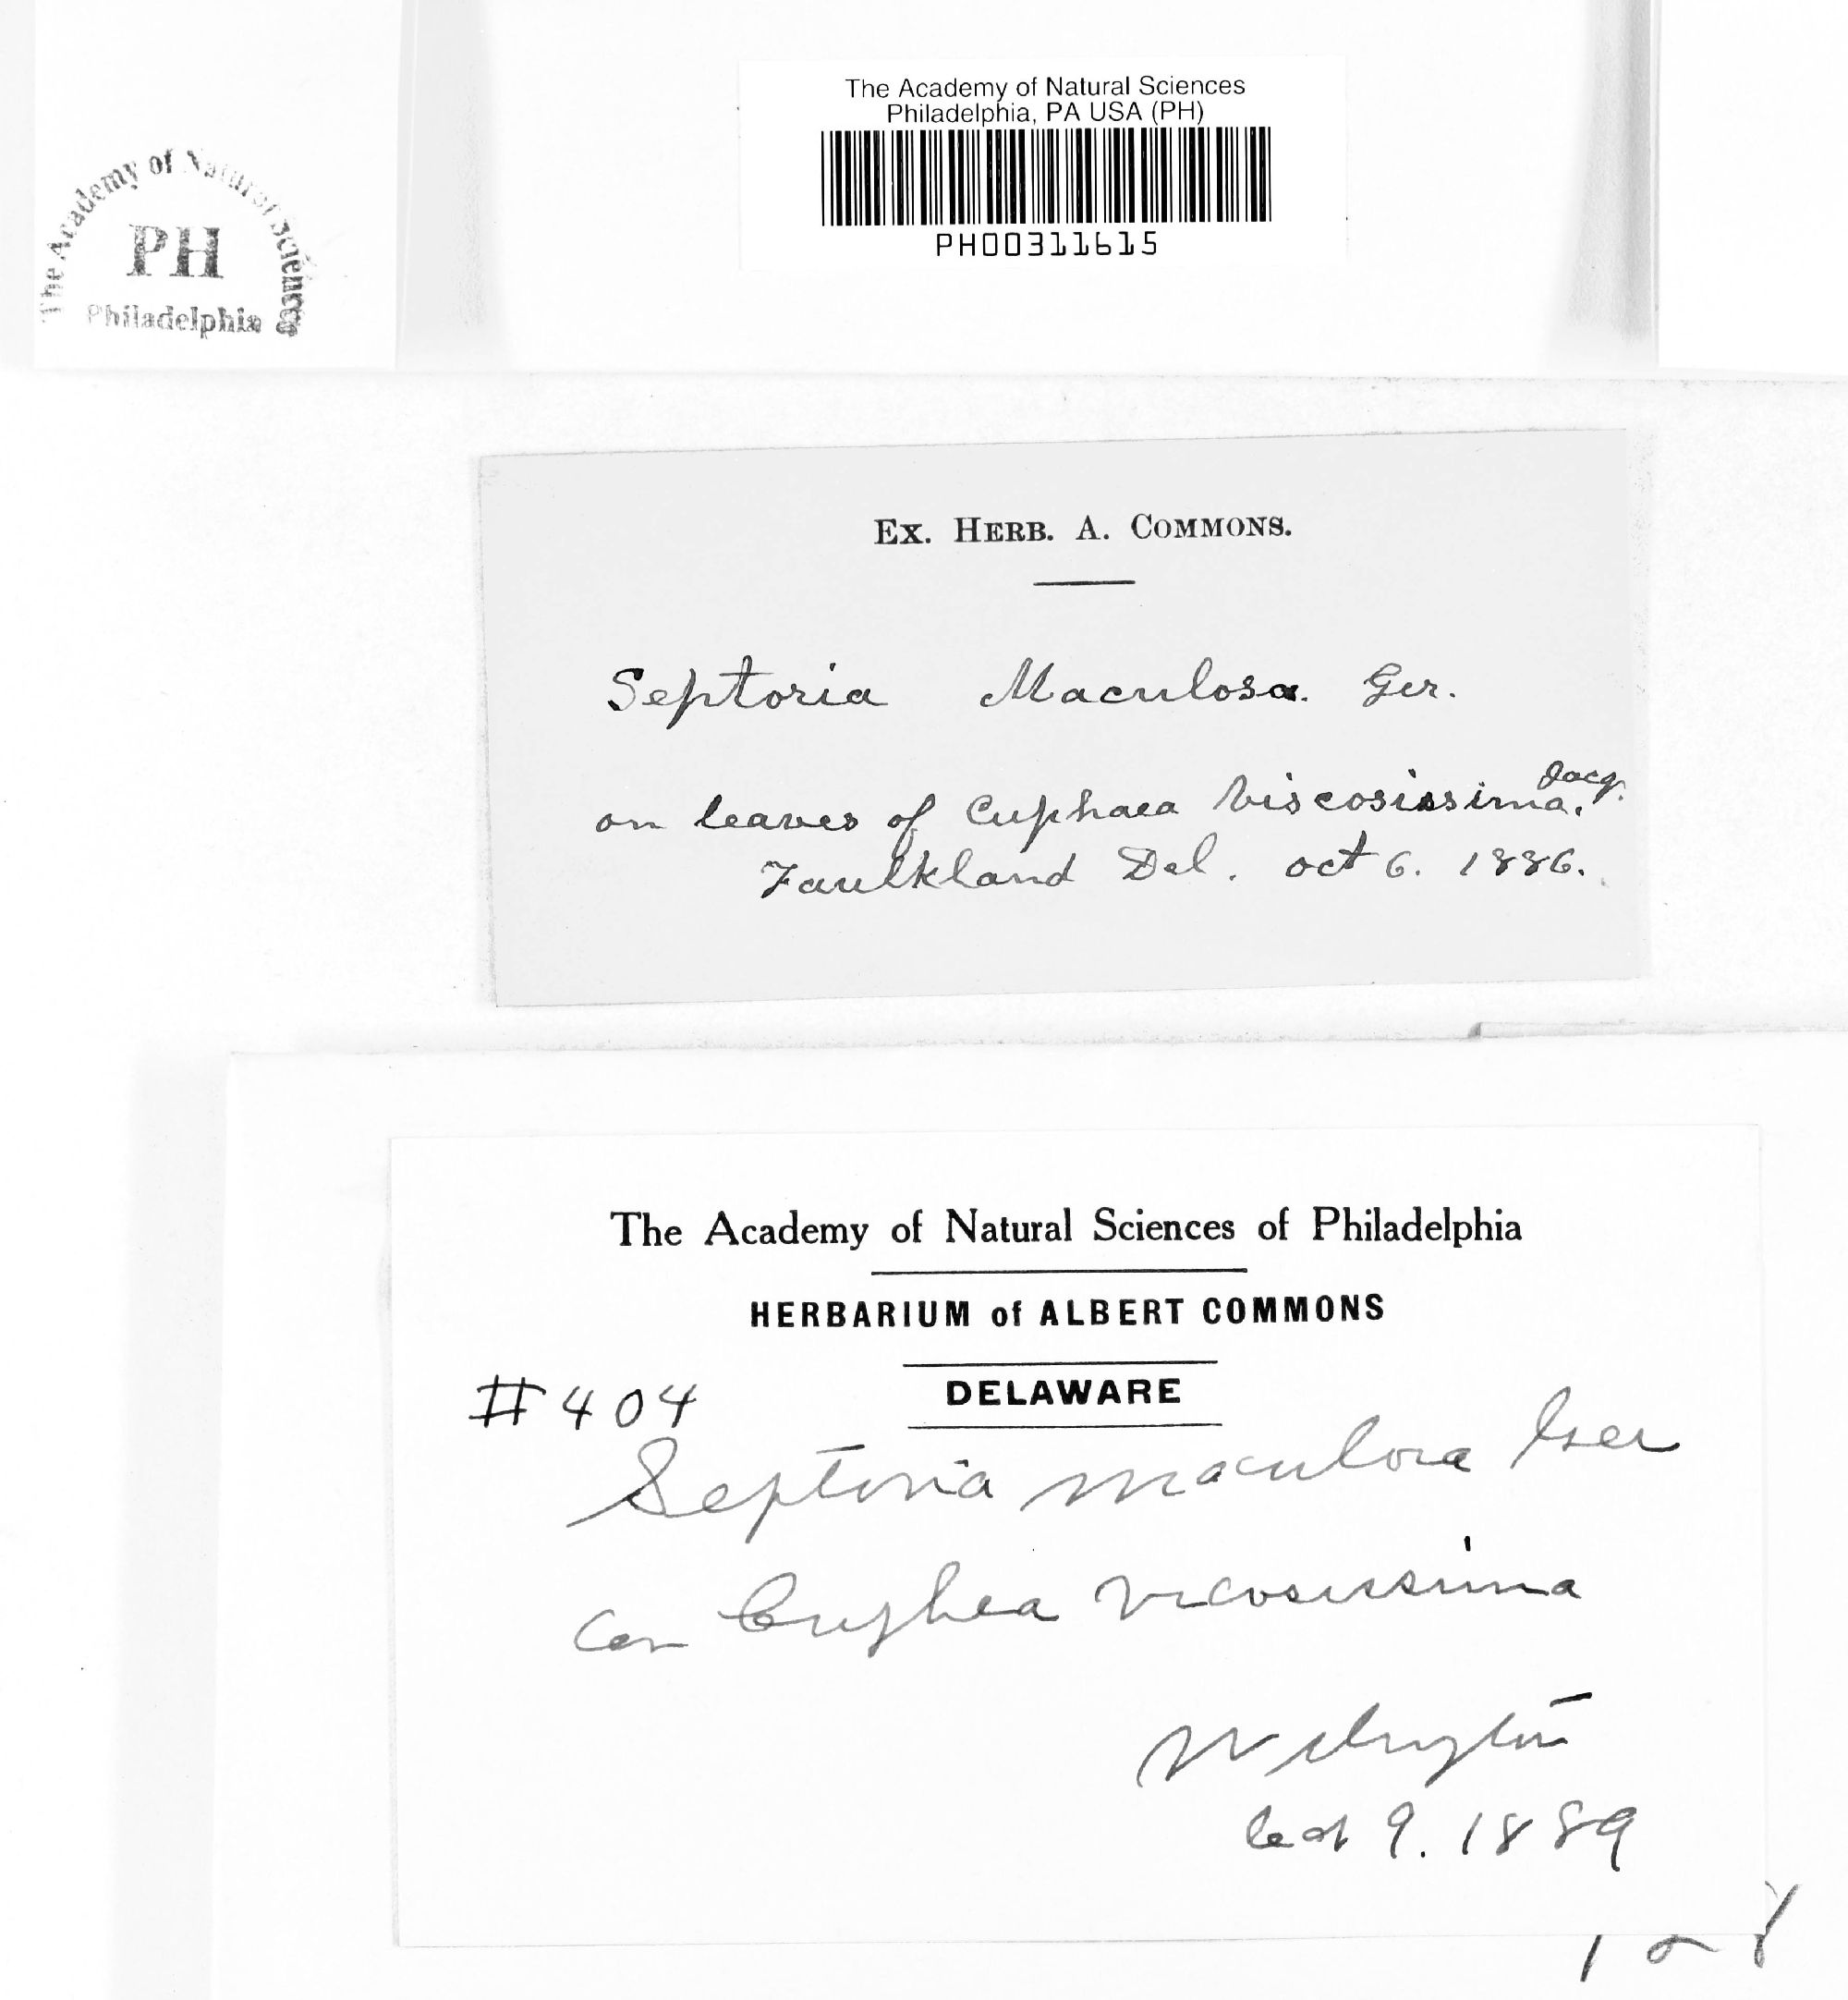 The Academy of Natural Sciences
Philadelphia, PA USA (PH)
PH00311615
The Academy of Natural Sciences
PH
Philadelphia
Ex. Herb. A. Commons.
Septoria Maculosa. Ger.
on leaves of Cuphaea Viscosissima, Jacq.
Faulkland Del. oct 6. 1886.
The Academy of Natural Sciences of Philadelphia
HERBARIUM of ALBERT COMMONS
DELAWARE
#404
Septoria maculosa Ger
on Cuphea viscosissima
Wilmington
Oct 9. 1889